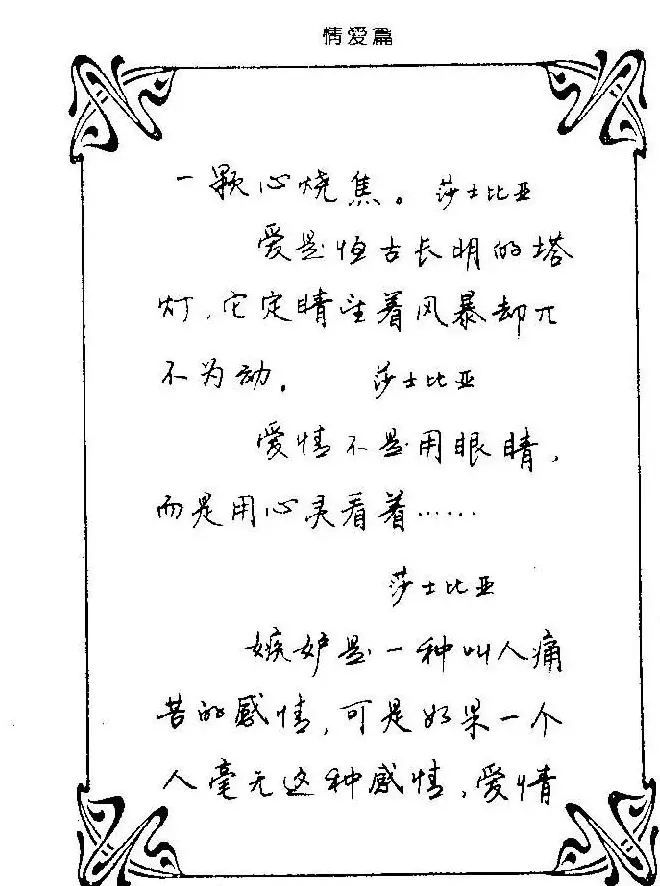 情爱篇
一颗心烧焦。 莎士比亚
爱是恒古长明的塔
灯,它定睛望着风暴却兀
不为动。 莎士比亚
爱情不是用眼睛,
而是用心灵看着……
莎士比亚
嫉妒是一种叫人痛
苦的感情,可是如果一个
人毫无这种感情,爱情